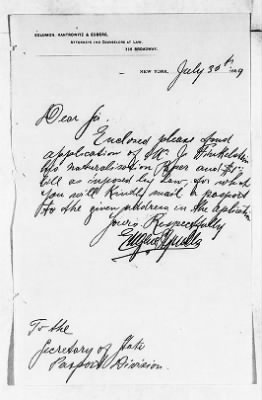 SOLOMON, KANTROWITZ & ESBERG,
ATTORNEYS AND COUNSELORS AT LAW,
114 BROADWAY.
NEW YORK, July 30th
Dear Sir.
Enclosed please find
application of Mr. J. Finkelstein
his naturalization Paper and $1.
bill as imposed by Law, for which
you will kindly mail a passport
to the given address in the
Yours Respectfully
To the
Secretary of State
Passport Division.